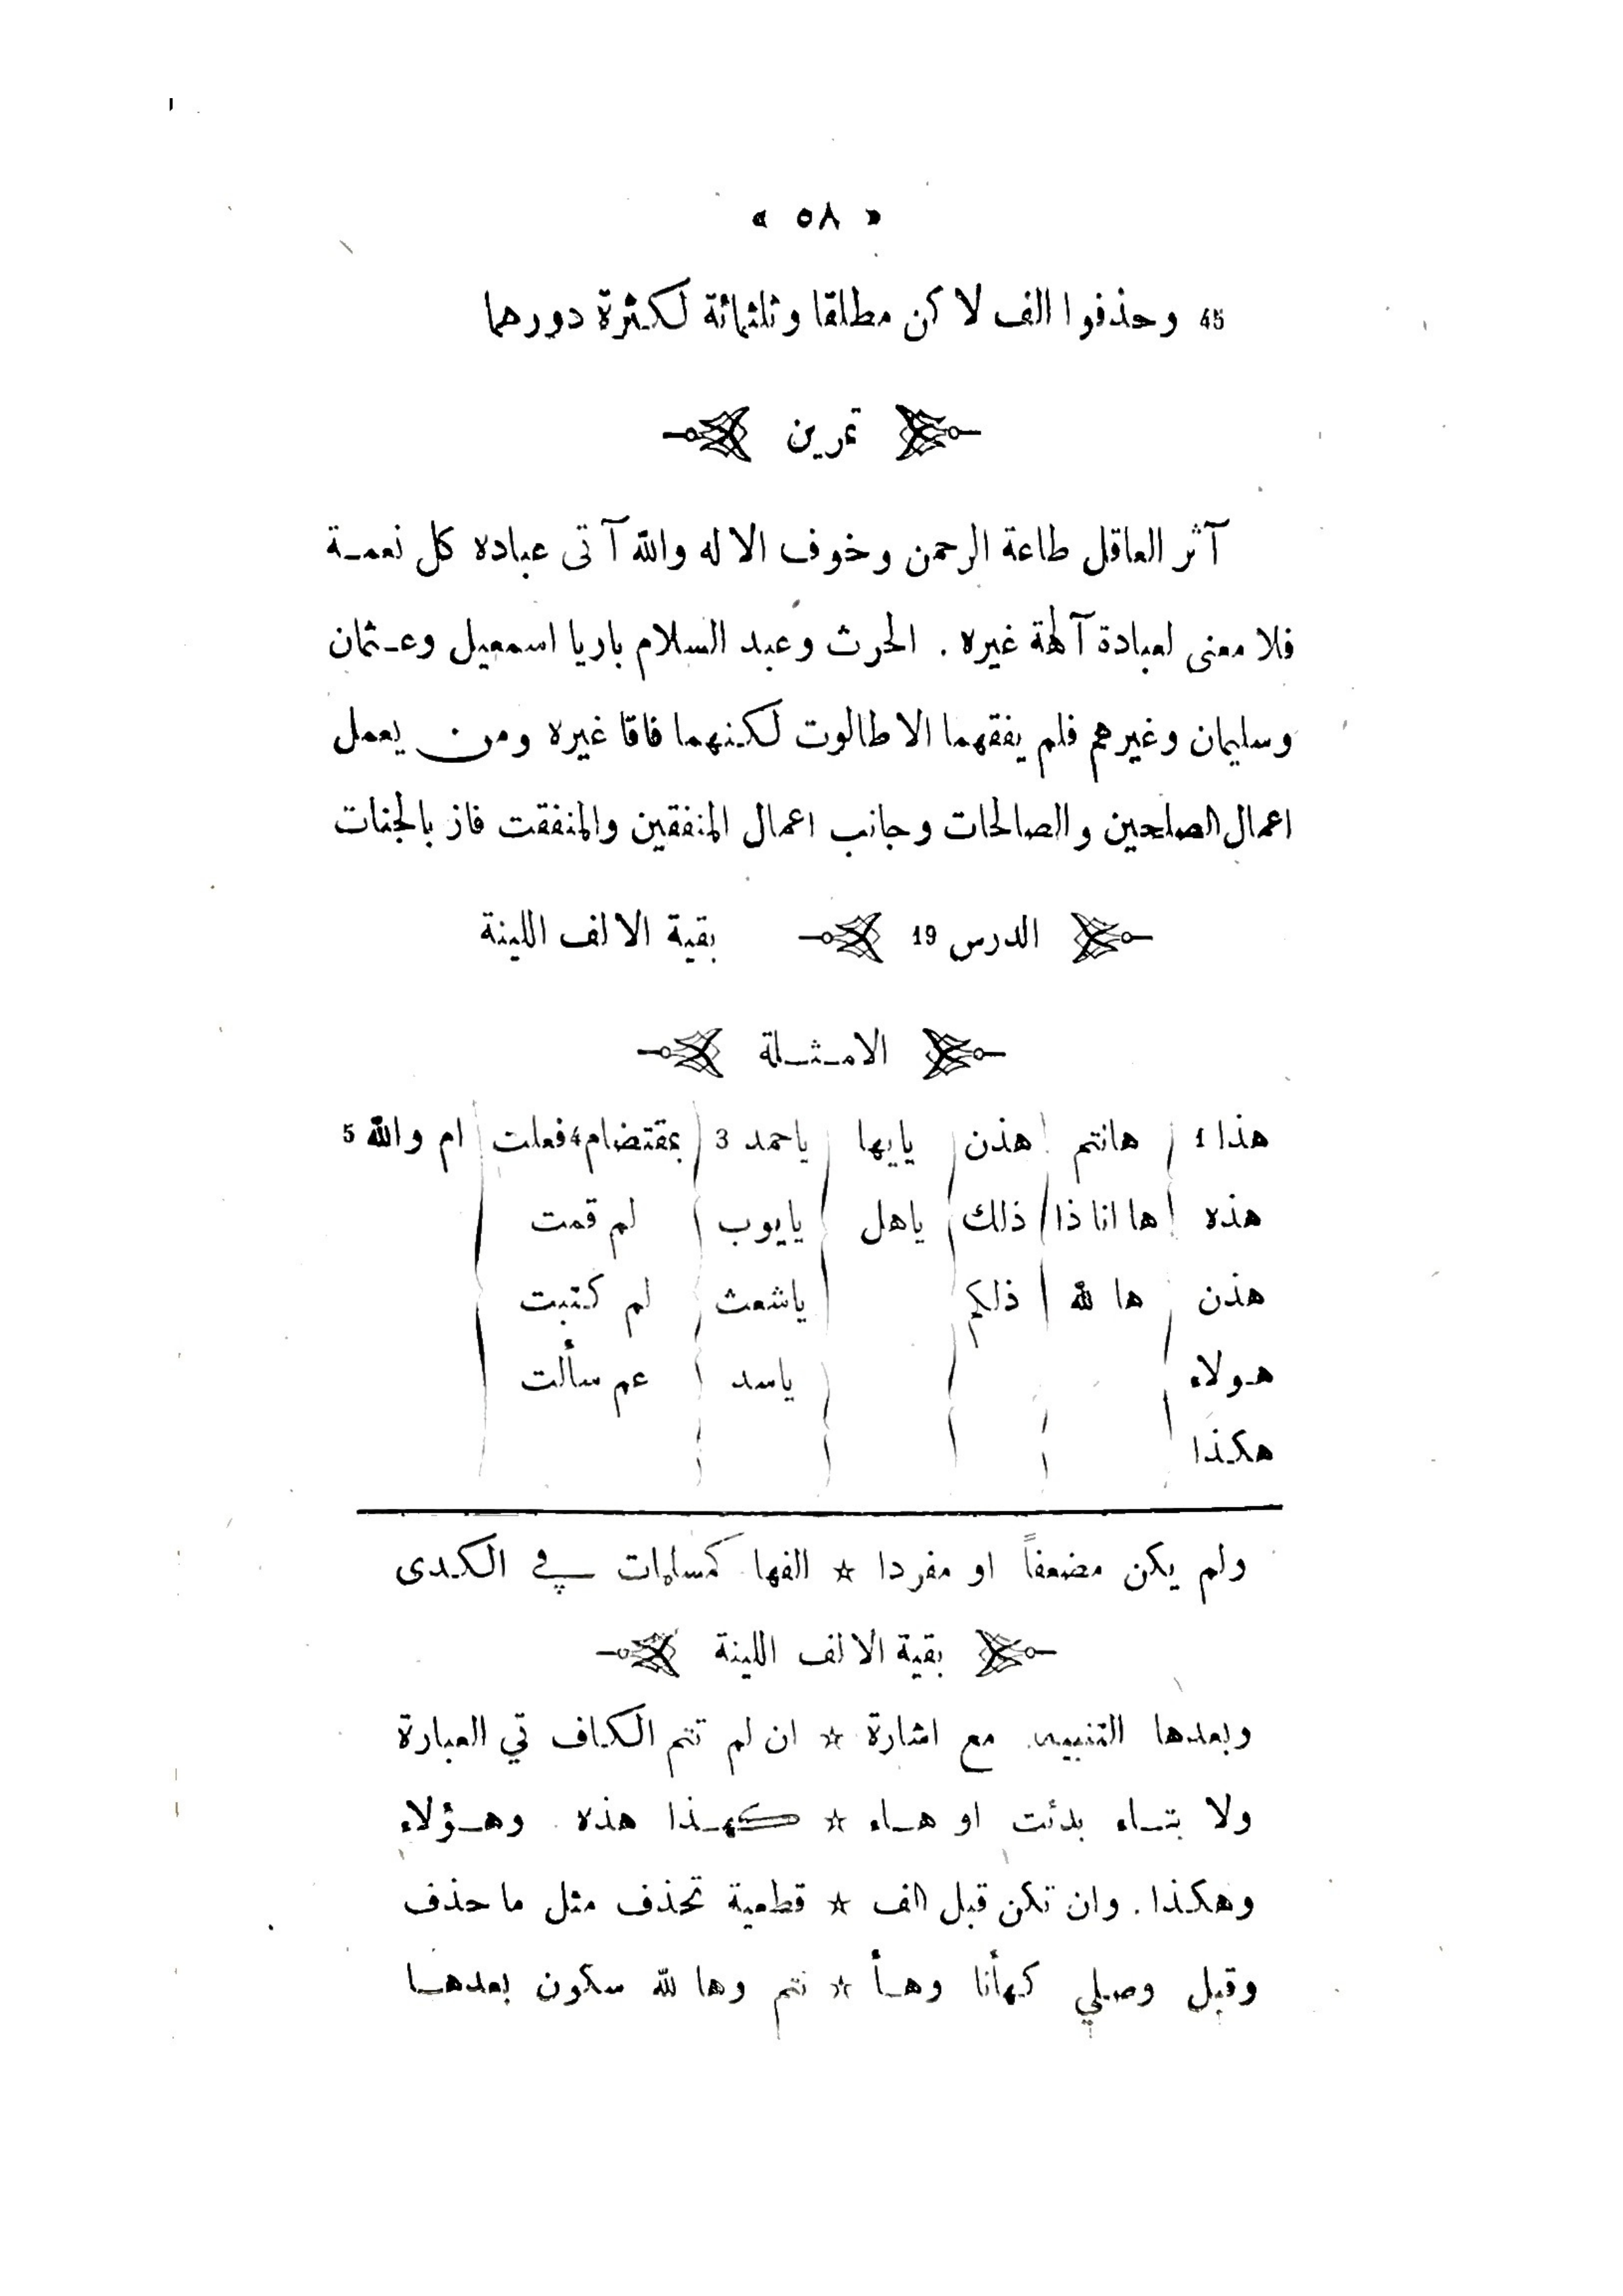 « ٥٨ »
45 وحذفوا الف لا كن مطلقا وثلثمائة لكثرة دورهما
تمرين
آثر العاقل طاعة الرحمن وخوف الاله والله آتى عباده كل نعمة
فلا معنى لعبادة آلهة غيره . الحرث وعبد السلام باريا اسمعيل وعثمان
وسليمان وغيرهم فلم يفقهما الاطالوت لكنهما فاقا غيره ومن يعمل
اعمال الصلحين والصالحات وجانب اعمال المنفقين والمنفقت فاز بالجنات
الدرس 19 بقية الالف اللينة
الامثلة
هذا 1 هانتم هذن يايها ياحمد 3 بمقتضام 4 فعلت ام والله 5
هذه ها انا ذا ذلك ياهل يايوب لم قمت
هذن ها لله ذلكم ياشعث لم كتبت
هولاء ياسد عم سألت
هكذا
ولم يكن مضعفاً او مفردا ☆ الفها كمسلمات في الكدى
بقية الالف اللينة
وبعدها التنبيه مع اشارة ☆ ان لم تتم الكاف تي العبارة
ولا بتاء بدئت او هاء ☆ كهذا هذه وهؤلاء
وهكذا . وان تكن قبل الف ☆ قطعية تحذف مثل ما حذف
وقبل وصلي كهأنا وهأ ☆ نتم وها لله سكون بعدها